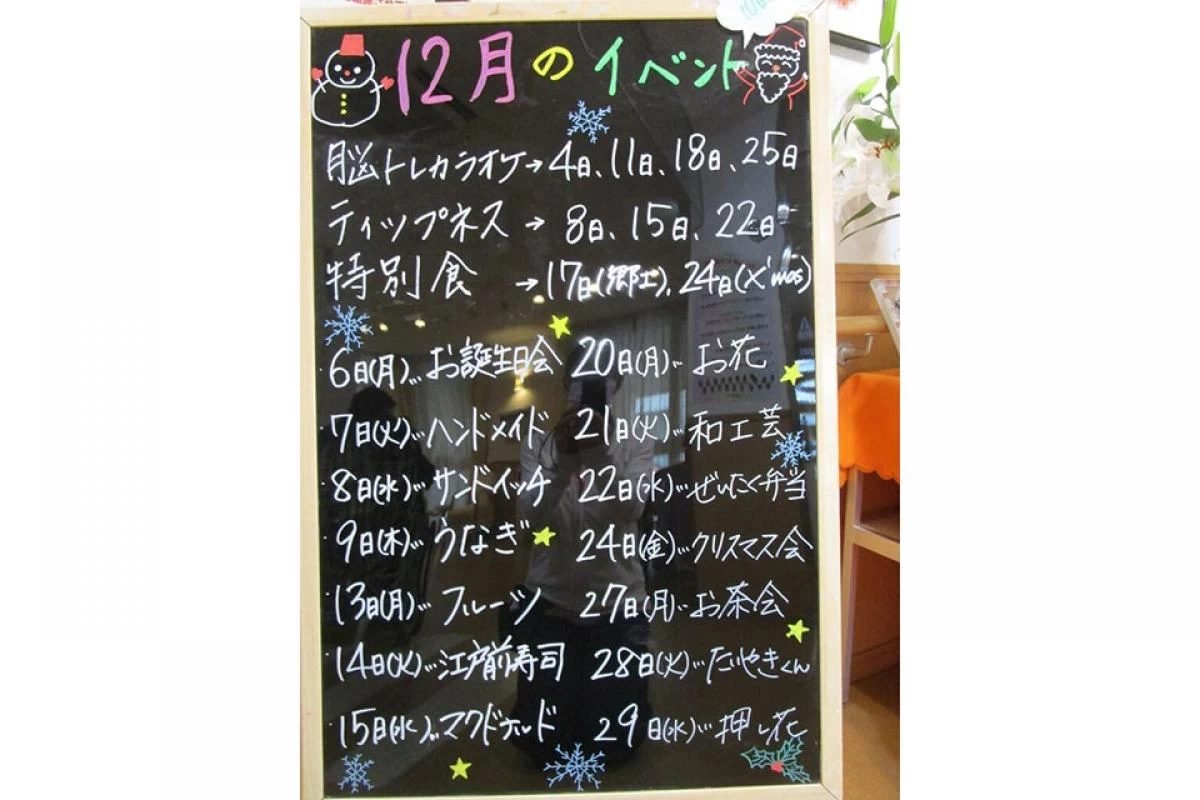 12月のイベント
脳トレカラオケ→4日、11日、18日、25日
ティップネス→8日、15日、22日
特別食→17日(郷土)、24日(X'mas)
6日(月)…お誕生日会 20日(月)…お花
7日(火)…ハンドメイド 21日(火)…和工芸
8日(水)…サンドイッチ 22日(水)…ぜいたく弁当
9日(木)…うなぎ 24日(金)…クリスマス会
13日(月)…フルーツ 27日(月)…お茶会
14日(火)…江戸前寿司 28日(火)…たいやきくん
15日(水)…マクドナルド 29日(水)…押し花